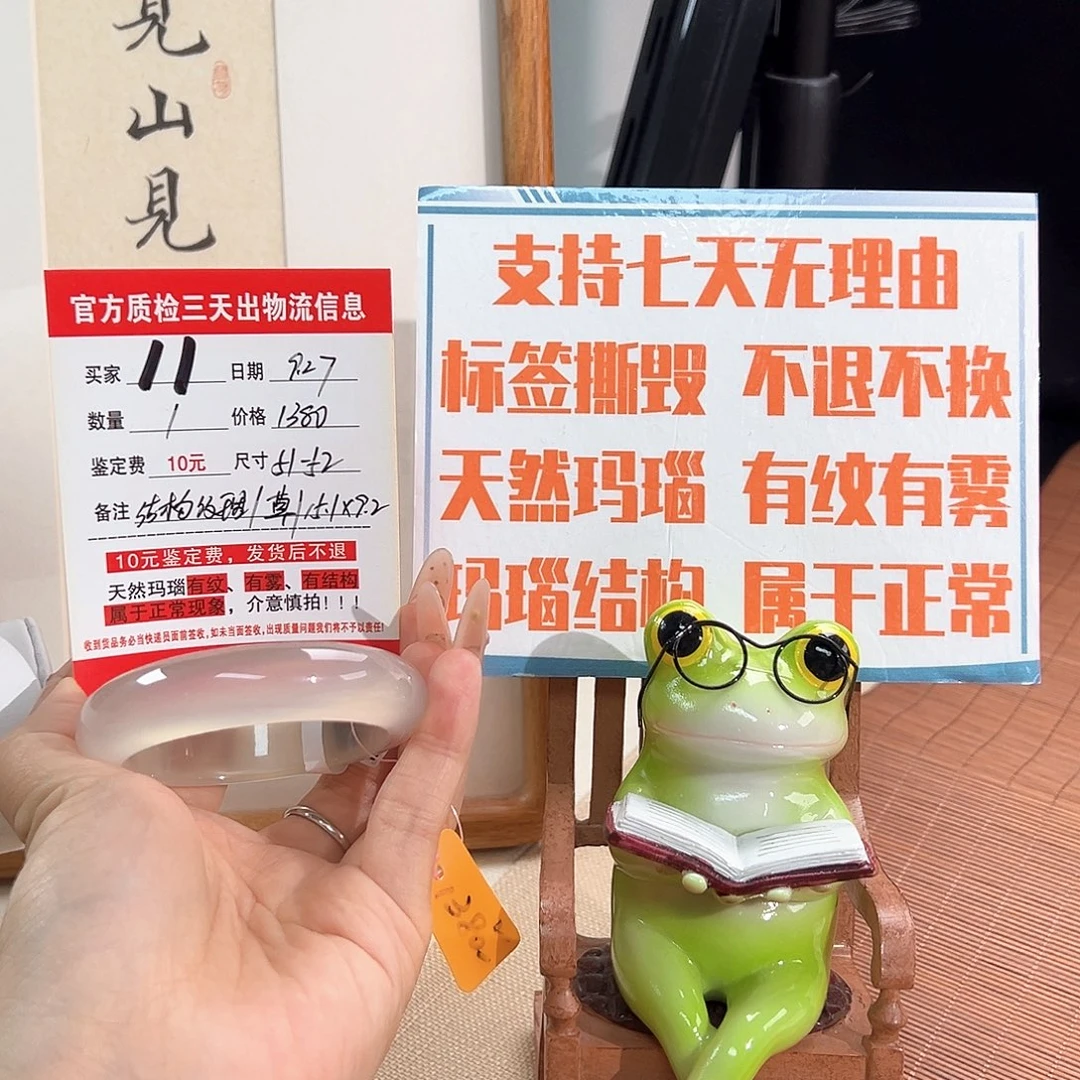 見
山
見
官方质检三天出物流信息
买家 11 日期 9.27
数量 1 价格 1380
鉴定费 10元 尺寸 51-52
备注 结构纹理 15.1×9.2
10元鉴定费，发货后不退
天然玛瑙有纹、有雾、有结构
属于正常现象，介意慎拍！！！
收到货品务必当快递员面前签收，如未当面签收，出现质量问题我们将不予以责任！
支持七天无理由
标签撕毁 不退不换
天然玛瑙 有纹有雾
玛瑙结构 属于正常